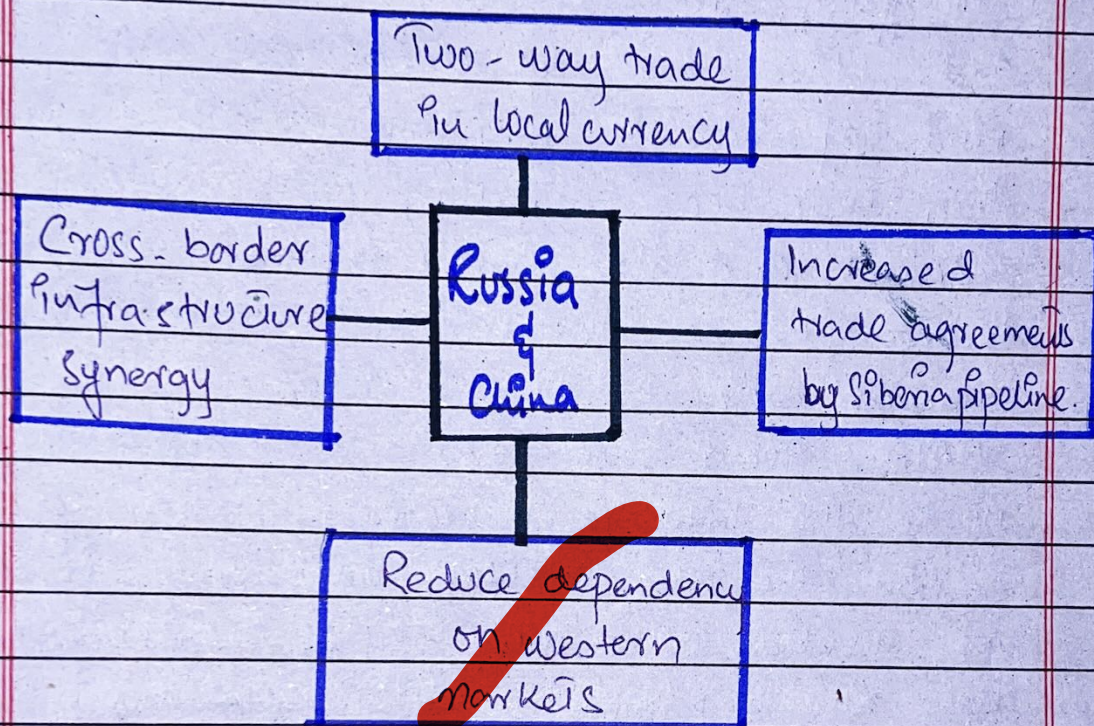 Two-way trade
in local currency
Cross-border
infrastructure
synergy
Russia
&
China
Increased
trade agreements
by Siberia pipeline.
Reduce dependency
on western
markets